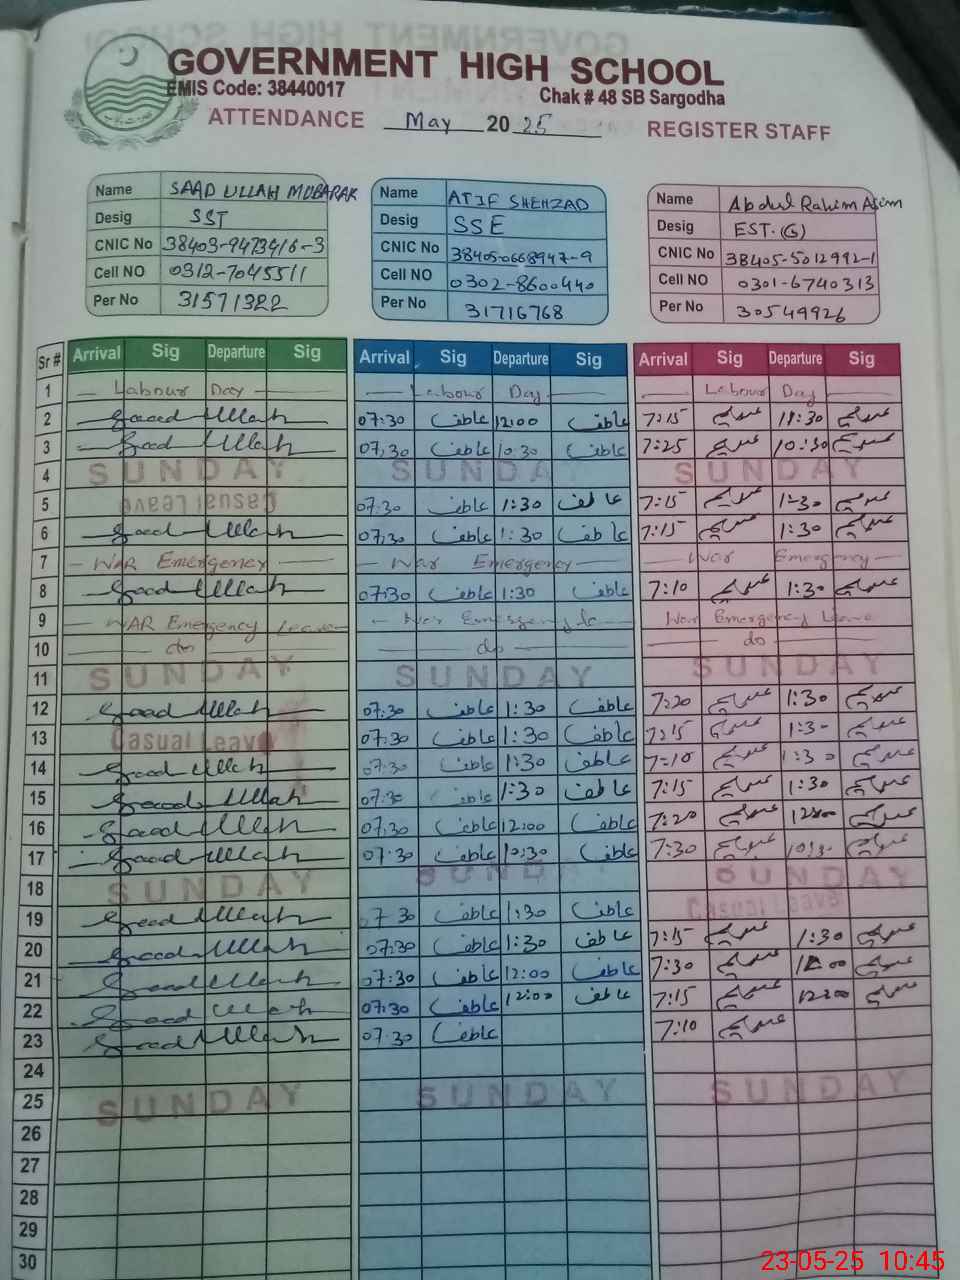 GOVERNMENT HIGH SCHOOL
EMIS Code: 38440017 Chak # 48 SB Sargodha
ATTENDANCE May 20 25 REGISTER STAFF
Name SAAD ULLAH MUBARAK
Desig SST
CNIC No 38403-9473416-3
Cell NO 0312-7045511
Per No 31571322
Name ATIF SHEHZAD
Desig SSE
CNIC No 38405-0668947-9
Cell NO 0302-8600440
Per No 31716768
Name Abdul Rahim Asim
Desig EST.(G)
CNIC No 38405-5012992-1
Cell NO 0301-6740313
Per No 30549926
Sr # Arrival Sig Departure Sig Arrival Sig Departure Sig Arrival Sig Departure Sig
1 Labour Day Labour Day Labour Day
2 Saad Ullah 07:30 عاطف 12:00 عاطف 7:15 11:30
3 Saad Ullah 07:30 عاطف 10:30 عاطف 7:25 10:30
4 SUNDAY SUNDAY SUNDAY
5 Casual Leave 07:30 عاطف 1:30 عاطف 7:15 1:30
6 Saad Ullah 07:30 عاطف 1:30 عاطف 7:15 1:30
7 WAR Emergency War Emergency War Emergency
8 Saad Ullah 07:30 عاطف 1:30 عاطف 7:10 1:30
9 WAR Emergency Leave War Emergency War Emergency Leave
10 do do do
11 SUNDAY SUNDAY SUNDAY
12 Saad Ullah 07:30 عاطف 1:30 عاطف 7:20 1:30
13 Casual Leave 07:30 عاطف 1:30 عاطف 7:15 1:30
14 Saad Ullah 07:30 عاطف 1:30 عاطف 7:10 1:30
15 Saad Ullah 07:30 عاطف 1:30 عاطف 7:15 1:30
16 Saad Ullah 07:30 عاطف 12:00 عاطف 7:20 12:00
17 Saad Ullah 07:30 عاطف 10:30 عاطف 7:30 10:30
18 SUNDAY SUNDAY SUNDAY
19 Saad Ullah 07:30 عاطف 1:30 عاطف Casual Leave
20 Saad Ullah 07:30 عاطف 1:30 عاطف 7:15 1:30
21 Saad Ullah 07:30 عاطف 12:00 عاطف 7:30 12:00
22 Saad Ullah 07:30 عاطف 12:00 عاطف 7:15 12:00
23 Saad Ullah 07:30 عاطف 7:10
24
25 SUNDAY SUNDAY SUNDAY
26
27
28
29
30
23-05-25 10:45